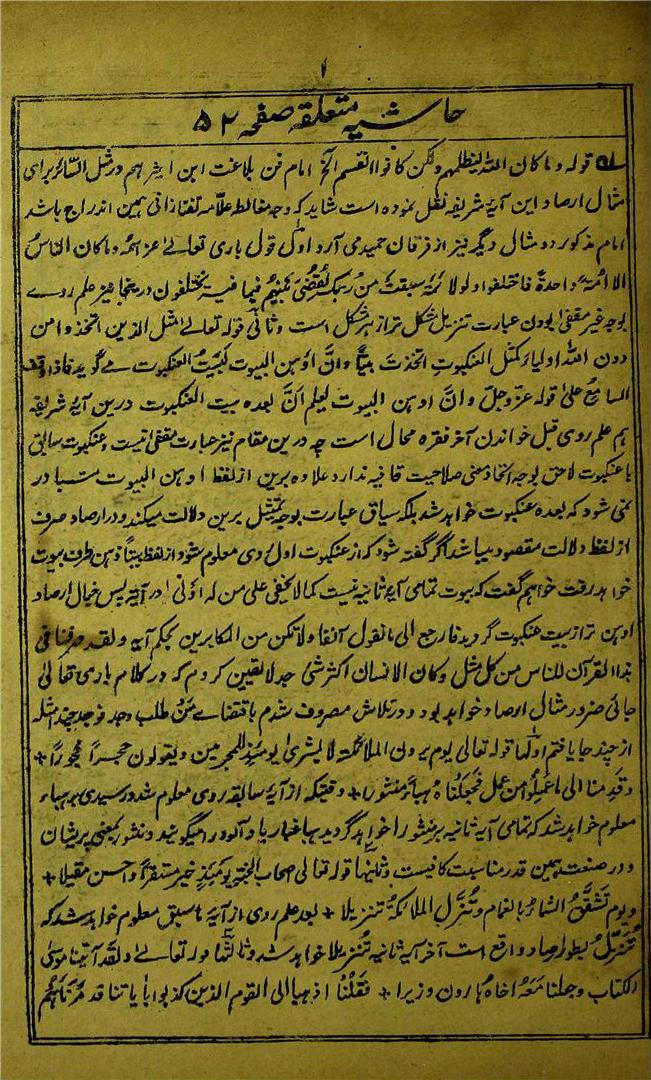 ۱
حاشیہ متعلقہ صفحہ ۵۲
قولہ وما کان اللہ لیظلمہم ولکن کانوا انفسہم الخ امام فن بلاغت ابن اثیر ہم در مثل السائر برای
مثال ارصاد این آیۂ شریفہ نقل نمودہ است شاید کہ وجہ مغالطہ علامہ تفتازانی ہمین اندراج باشد
امام مذکور دو مثال دیگر نیز از فرقان حمیدی آرد اول قول باری تعالیٰ عز اسمہ وما کان الناسُ
الا امّۃ واحدۃً فاختلفوا ولولا کلمۃٌ سبقت من ربک لقُضِیَ بینہم فیما فیہ یختلفون درینجا نیز علم روے
بوجہ غیر مقفیٰ بودن عبارت تنزیل مشکل تر از ہر مشکل است وثانی قولہ تعالےٰ مثل الذین اتخذوا من
دون اللہ اولیاء کمثل العنکبوتِ اتخذت بیتًا وانَّ اوہن البیوت لبیتُ العنکبوت مے گوید فاذا وقف
السامعُ علیٰ قولہ عزوجل وانَّ اوہن البیوت لیعلم انَّ بعدہ بیت العنکبوت درین آیۂ شریفہ
ہم علم روی قبل خواندن آخر فقرہ محال است چہ درین مقام نیز عبارت مقفیٰ نیست وعنکبوت سابق
با عنکبوت لاحق بوجہ اتحاد معنی صلاحیت قافیہ ندارد علاوہ برین از لفظ اوہن البیوت متبادر
نمی شود کہ بعدہ عنکبوت خواہد شد بلکہ سیاق عبارت بوجہ تمثیل برین دلالت میکند و در ارصاد صرف
از لفظ دلالت مقصود میباشد اگر گفتہ شود کہ از عنکبوت اول روی معلوم شود و از لفظ بیتاً ذہن طرف بیوت
خواہد رفت خواہم گفت کہ بیوت تمامی آیۂ ثانیہ نیست کما لا یخفیٰ علی من لہ ادنیٰ درایۃ پس خیال ارصاد
اوہن تر از بیت عنکبوت گردید فارجع الی ما نقول آنفا ولا تکن من المکابرین بحکم آیہ ولقد صرفنا فی
ہذا القرآن للناس من کل مثل وکان الانسان اکثر شئ جدلا یقین کردم کہ در کلام باری تعالیٰ
جائی ضرور مثال ارصاد خواہد بود و در تلاش مصروف شدم باقتضاے مَن طلب وجد فوجد چند امثلہ
از چند جا یافتم اولہا قولہ تعالی یوم یرون الملائکۃ لا بشریٰ یومئذٍ للمجرمین ویقولون حجراً محجوراً +
وقدِمنا الی ما عَمِلُوا من عمل فجعلناہ ہباءً منثورا + وقتیکہ از آیۂ سابقہ روی معلوم شد و رسیدی بر ہباء
معلوم خواہد شد کہ تمامی آیۂ ثانیہ بر منثورا خواہد گردید ہبا غبار یا دآلود را میگویند ونشور بمعنی پریشان
و در صنعت ہمین قدر مناسبت کافیست وثانیہا قولہ تعالی اصحاب الجنۃ یومئذٍ خیر مستقراً واحسن مقیلا +
ویوم تَشَقَّقُ السَّماءُ بالغمام ونُزِّل الملائکۃُ تنزیلا + بعد علم روی از آیۂ ما سبق معلوم خواہد شد کہ
نُزِّلَ بطور ارصاد واقع است آخر آیۂ ثانیہ تنزیلا خواہد شد وثالثہا قولہ تعالےٰ ولقد آتینا موسی
الکتاب وجعلنا معہ اخاہ ہارون وزیرا + فقلنا اذہبا الی القوم الذین کذبوا بآیاتنا فدمرناہم